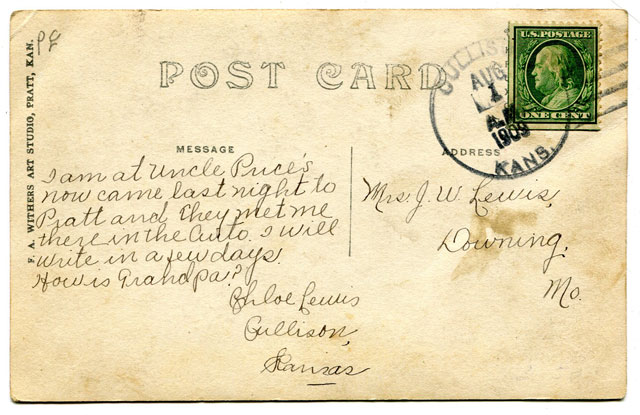 PF
F. A. WITHERS ART STUDIO, PRATT, KAN.
POST CARD
CULLISO
AUG
1
A.M
1909
KANS.
U.S. POSTAGE
ONE CENT
MESSAGE
I am at Uncle Price's
now came last night to
Pratt and they met me
there in the Auto. I will
write in a few days.
How is Grandpa?
Chloe Lewis
Cullison,
Kansas
ADDRESS
Mrs. J. W. Lewis,
Downing,
Mo.